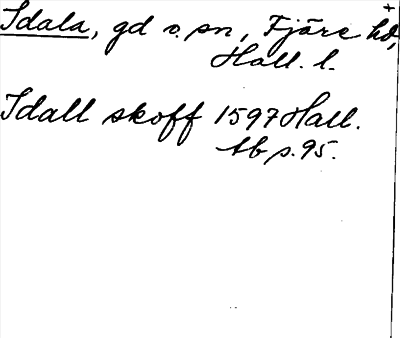 Idala, gd o. sn, Fjäre hd,
Hall. l.
Idall skoff 1597 Hall.
tb s. 95.